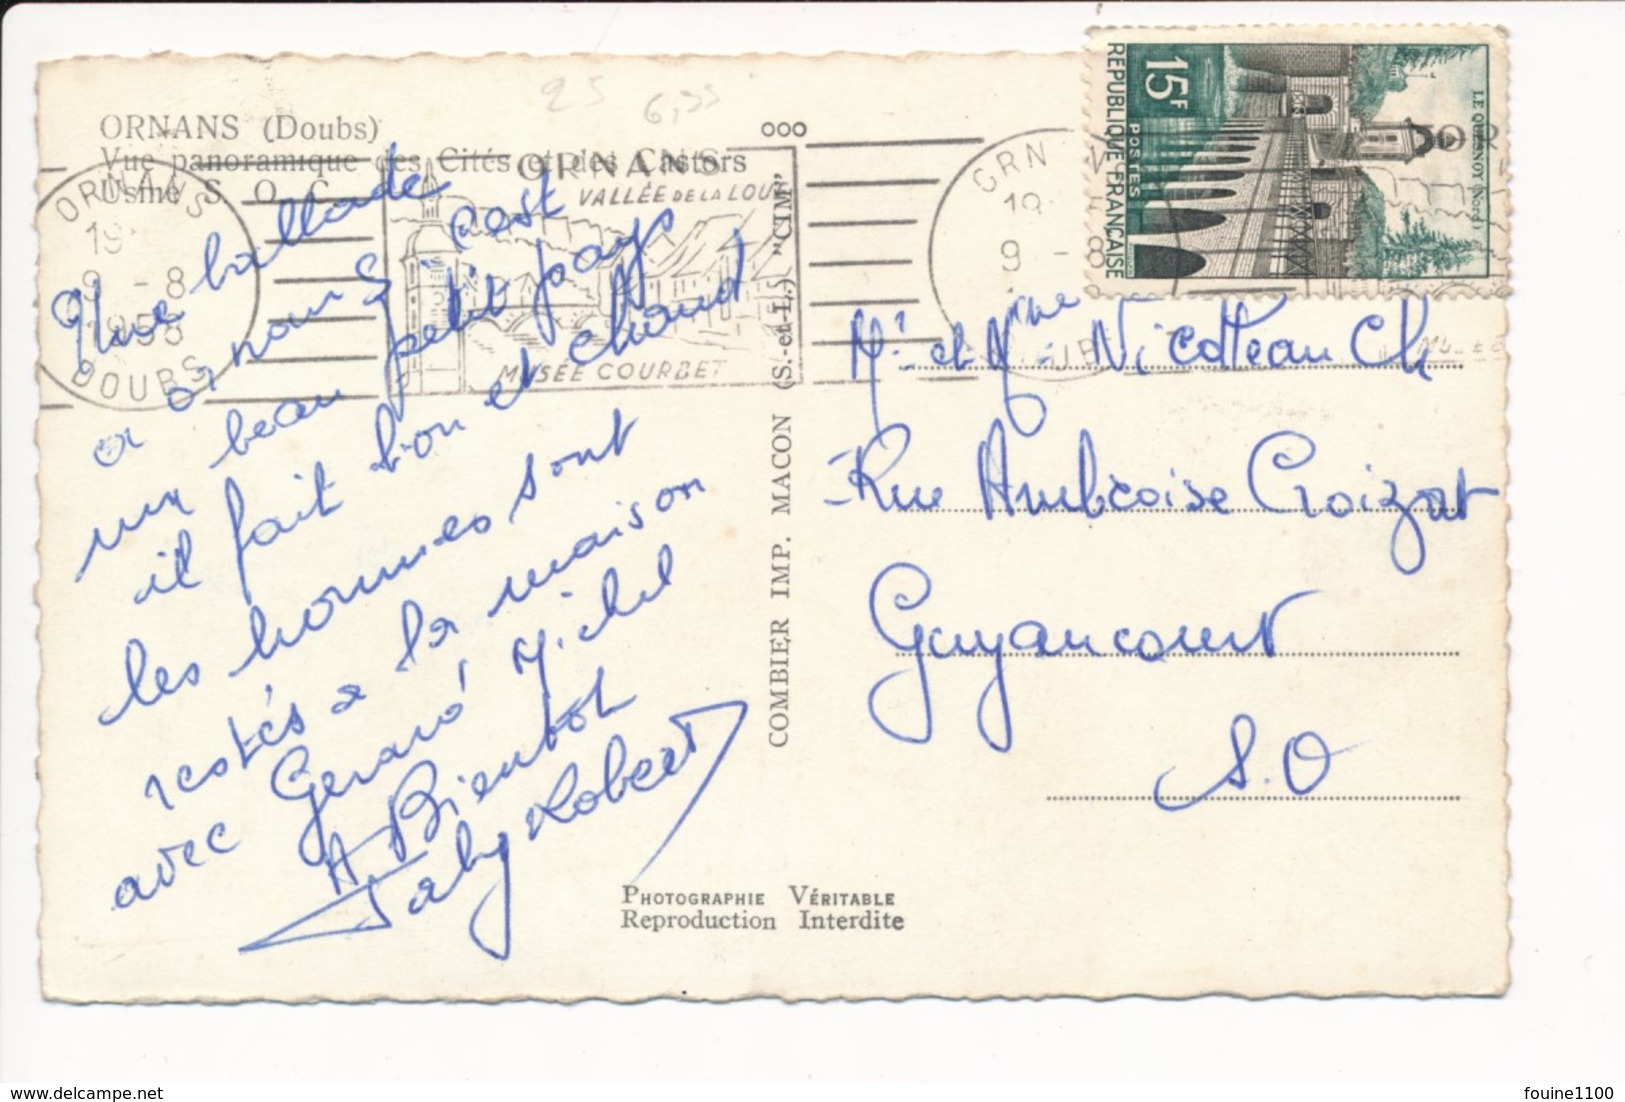 ORNANS (Doubs)
Vue panoramique des Cités et des Castors
Usine S. O. C.
25
6,35
ooo
ORNANS
19
9 - 8
1958
DOUBS
ORNANS
VALLÉE DE LA LOUE
MUSÉE COURBET
ORNANS
9 - 8
15F
POSTES
REPUBLIQUE FRANÇAISE
LE QUESNOY (Nord)
Une ballade
a ornans c'est
un beau petit pays
il fait bon et chaud
les hommes sont
restés a la maison
avec Gerard Michel
A Bientot
Robert
COMBIER IMP. MACON (S.-et-L.) "CIM"
Mr et Mme Nicolleau Ch
Rue Ambroise Croizat
Guyancourt
S.O
PHOTOGRAPHIE VÉRITABLE
Reproduction Interdite
delcampe.net
fouine1100